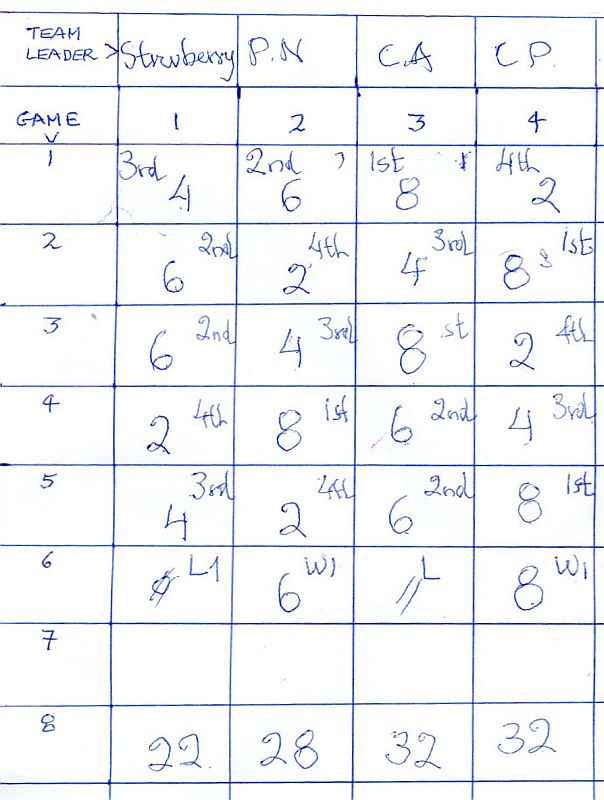 TEAM LEADER > Strwberry P.N C.A C.P.
GAME 1 2 3 4
1 3rd 4 2nd 6 1st 8 4th 2
2 6 2nd 2 4th 4 3rd 8 1st
3 6 2nd 4 3rd 8 st 2 4th
4 2 4th 8 1st 6 2nd 4 3rd
5 4 3rd 2 4th 6 2nd 8 1st
6 L1 6 W1 L 8 W1
7
8 22. 28 32 32